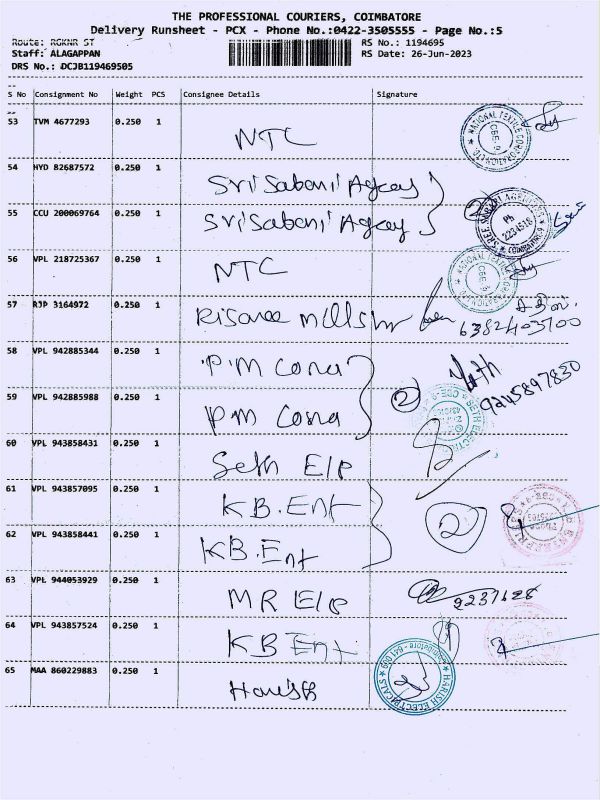 THE PROFESSIONAL COURIERS, COIMBATORE
Delivery Runsheet - PCX - Phone No.:0422-3505555 - Page No.:5
Route: RGKNR ST
RS No.: 1194695
Staff: ALAGAPPAN
RS Date: 26-Jun-2023
DRS No.: DCJB119469505
S No Consignment No Weight PCS Consignee Details Signature
53 TVM 4677293 0.250 1 NTC
54 HYD 82687572 0.250 1 Sri Sabani Agcay
55 CCU 200069764 0.250 1 Sri Sabani Agcay 2
56 VPL 218725367 0.250 1 NTC
57 RJP 3164972 0.250 1 6382403700
58 VPL 942885344 0.250 1 P.M Cona
59 VPL 942885988 0.250 1 P.M Cona 2 9245897830
60 VPL 943858431 0.250 1 Seth E/P
61 VPL 943857095 0.250 1 K.B.Ent
62 VPL 943858441 0.250 1 K.B.Ent 2
63 VPL 944053929 0.250 1 MR E/P 9237628
64 VPL 943857524 0.250 1 K B Ent
65 MAA 860229883 0.250 1 Harish
HARISH ELECTRICALS